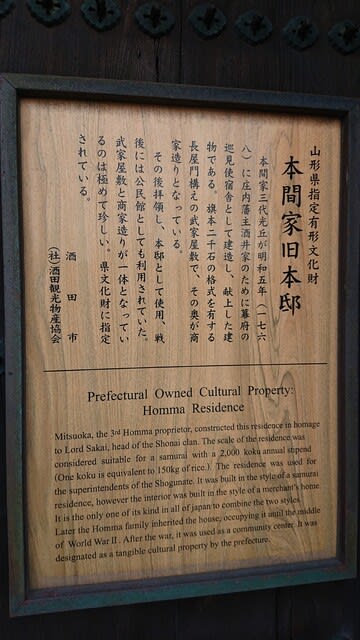 山形県指定有形文化財
本間家旧本邸
本間家三代光丘が明和五年（一七六
八）に庄内藩主酒井家のために幕府の
巡見使宿舎として建造し、献上した建
物である。旗本二千石の格式を有する
長屋門構えの武家屋敷で、その奥が商
家造りとなっている。
その後拝領し、本邸として使用、戦
後には公民館としても利用されていた。
武家屋敷と商家造りが一体となってい
るのは極めて珍しい。県文化財に指定
されている。
酒田市
(社)酒田観光物産協会
Prefectural Owned Cultural Property:
Homma Residence
Mitsuoka, the 3rd Homma proprietor, constructed this residence in homage
to Lord Sakai, head of the Shonai clan. The scale of the residence was
considered suitable for a samurai with a 2,000 koku annual stipend
(One koku is equivalent to 150kg of rice.) The residence was used for
the superintendents of the Shogunate. It was built in the style of a samurai
residence, however the interior was built in the style of a merchant's home.
It is the only one of its kind in all of japan to combine the two styles.
Later the Homma family inherited the house, occupying it until the middle
of World War II. After the war, it was used as a community center. It was
designated as a tangible cultural property by the prefecture.